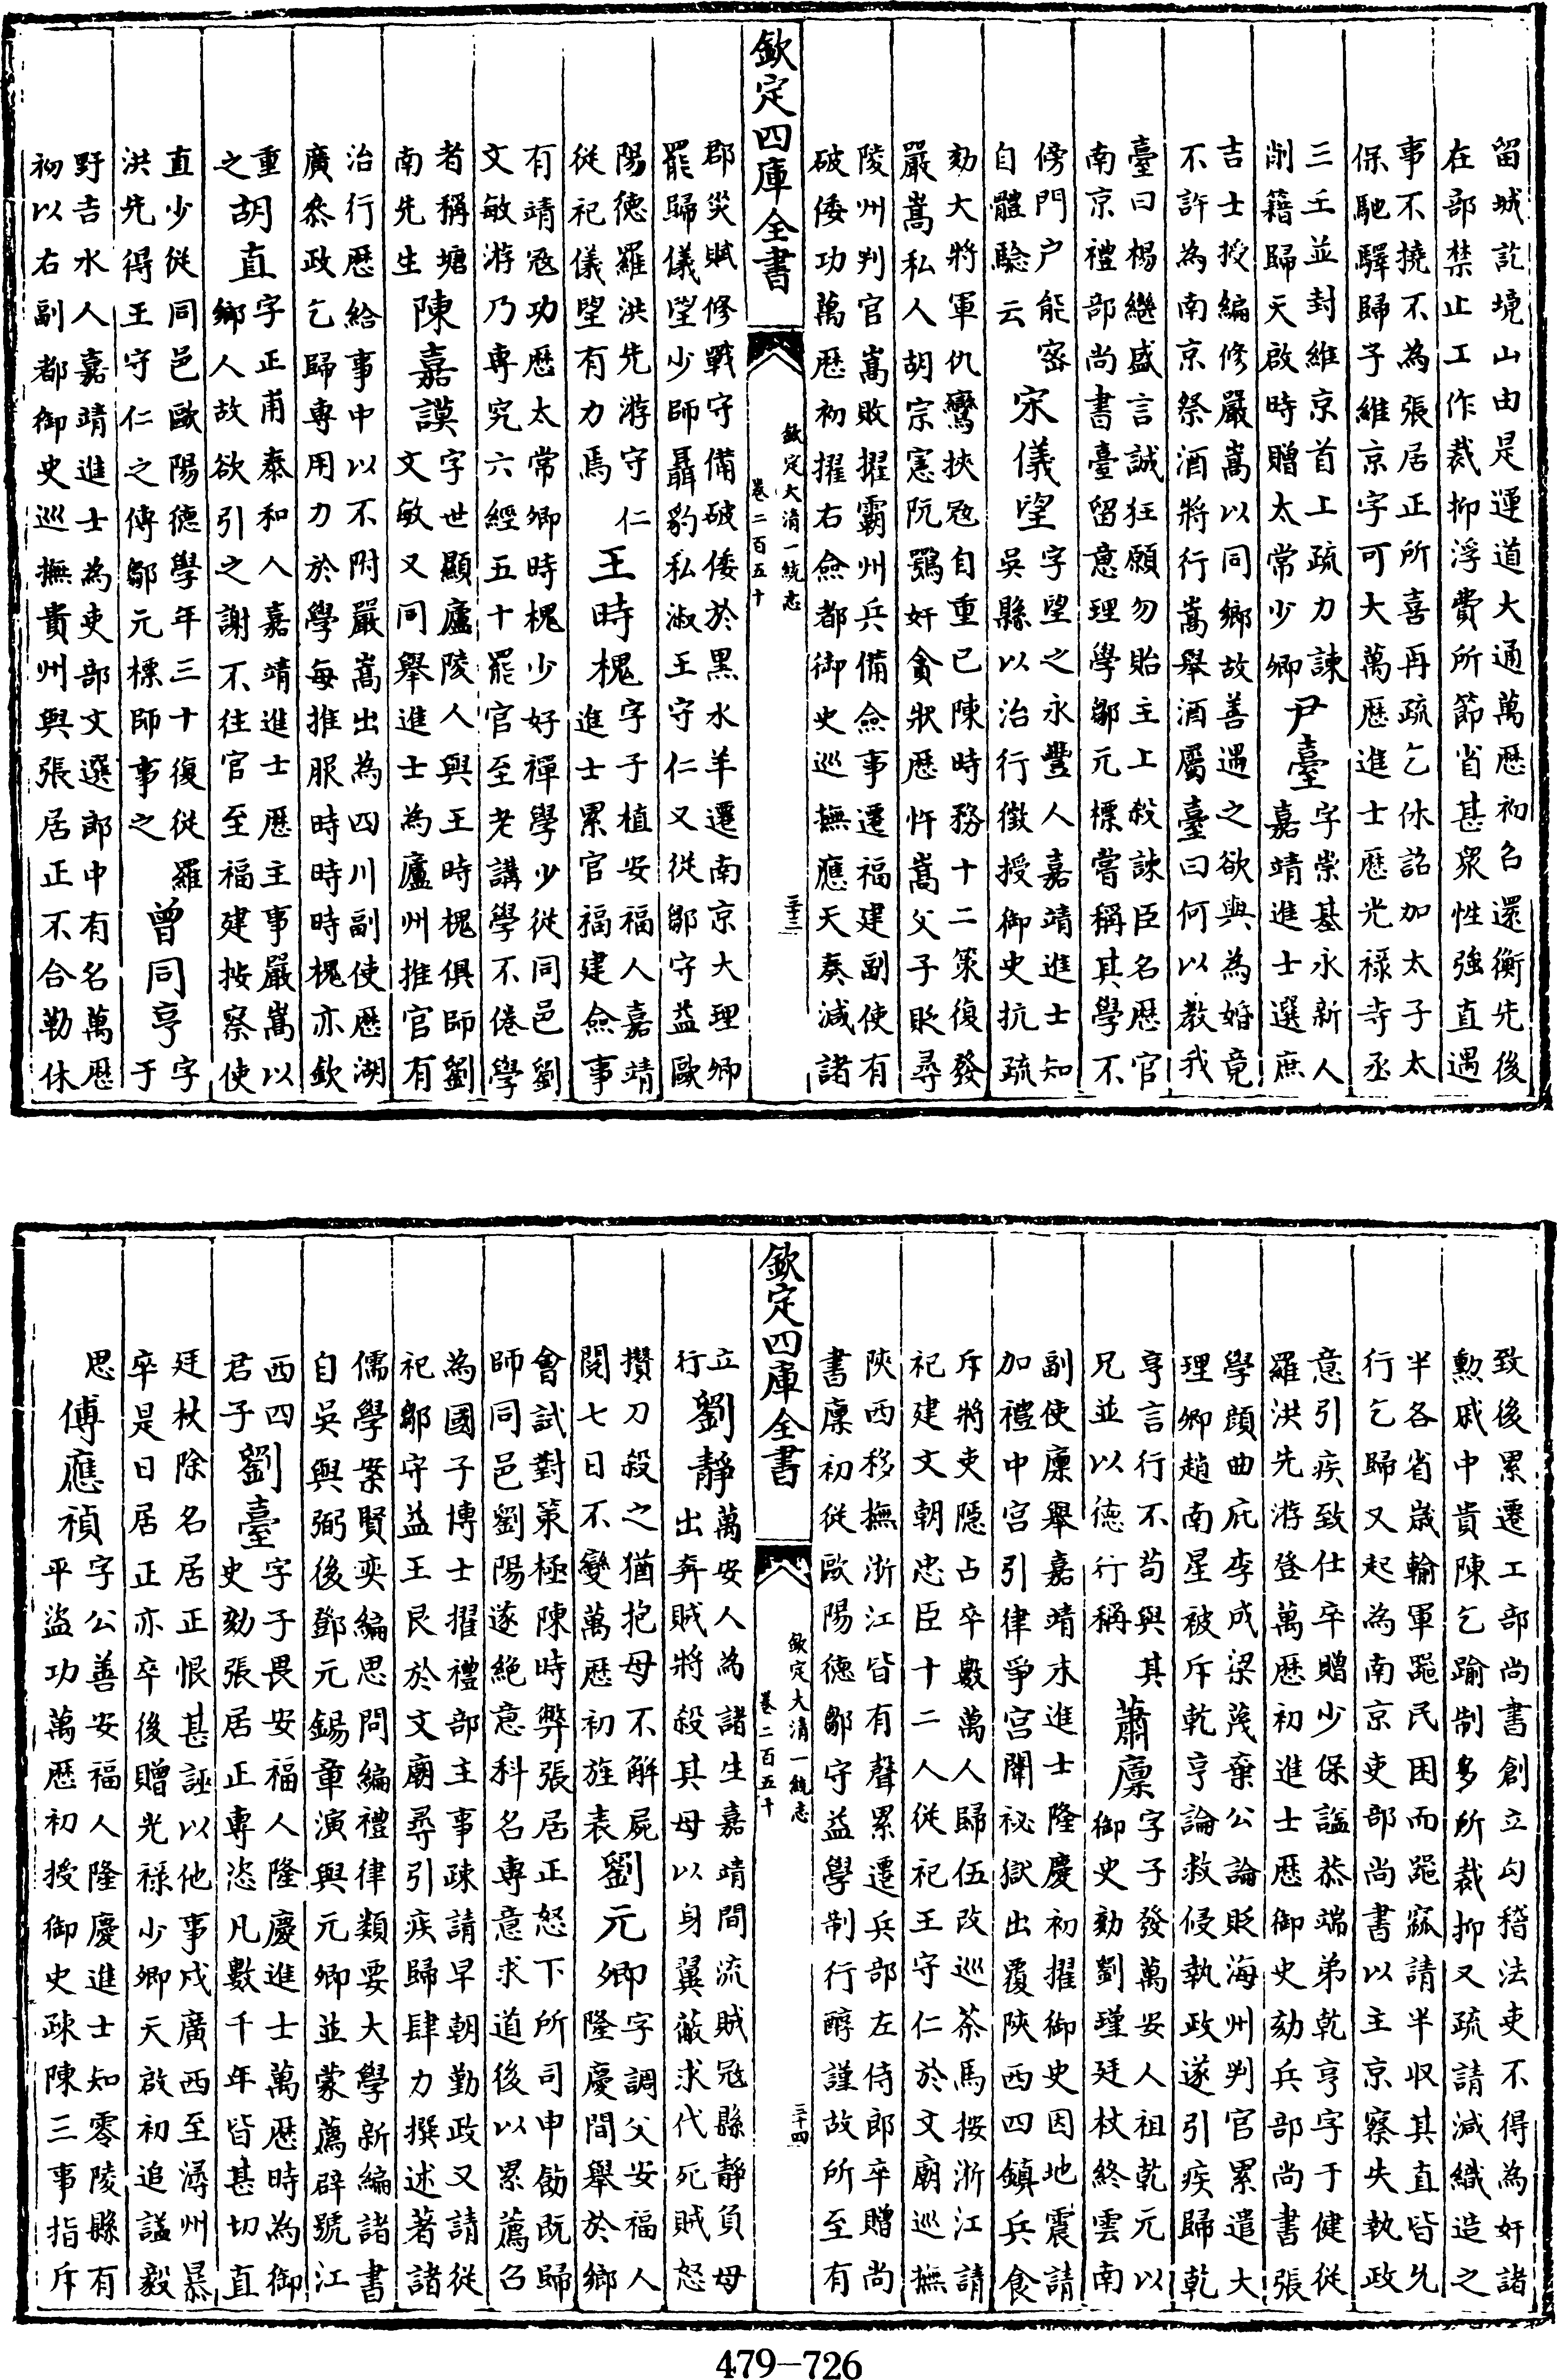 留城訖境山由是運道大通萬歴初召還衡先後
在部禁止工作裁抑浮費所節省甚衆性強直遇
事不撓不為張居正所喜再疏乞休詔加太子太
保馳驛歸子維京字可大萬歴進士歴光禄寺丞
三王並封維京首上疏力諫
削籍歸天啟時贈太常少卿
尹臺
字崇基永新人
嘉靖進士選庶
吉士授編修嚴嵩以同鄉故善遇之欲與為婚竟
不許為南京祭酒將行嵩舉酒屬臺曰何以教我
臺曰楊繼盛言誠狂願勿貽主上殺諫臣名歴官
南京禮部尚書臺留意理學鄒元標嘗稱其學不
傍門户能宻
自體驗云
宋儀望
字望之永豐人嘉靖進士知
吳縣以治行徵授御史抗疏
劾大將軍仇鸞挾宼自重已陳時務十二策復發
嚴嵩私人胡宗憲阮鶚奸貪狀歴忤嵩父子貶尋
陵州判官嵩敗擢霸州兵備僉事遷福建副使有
破倭功萬歴初擢右僉都御史巡撫應天奏減諸
欽定四庫全書
欽定大清一統志
卷二百五十
三十三
郡災賦修戰守備破倭於黑水羊遷南京大理卿
罷歸儀望少師聶豹私淑王守仁又從鄒守益歐
陽德羅洪先游守仁
從祀儀望有力焉
王時槐
字子植安福人嘉靖
進士累官福建僉事
有靖宼功歴太常卿時槐少好禪學少從同邑劉
文敏游乃專究六經五十罷官至老講學不倦學
者稱塘
南先生
陳嘉謨
字世顯廬陵人與王時槐俱師劉
文敏又同舉進士為廬州推官有
治行歴給事中以不附嚴嵩出為四川副使歴湖
廣叅政乞歸專用力於學每推服時時時槐亦欽
重
之
胡直
字正甫泰和人嘉靖進士歴主事嚴嵩以
鄉人故欲引之謝不往官至福建按察使
直少從同邑歐陽德學年三十復從羅
洪先得王守仁之傳鄒元標師事之
曾同亨
字
于
野吉水人嘉靖進士為吏部文選郎中有名萬歴
初以右副都御史巡撫貴州與張居正不合勒休
致後累遷工部尚書創立勾稽法吏不得為奸諸
勲戚中貴陳乞踰制多所裁抑又疏請減織造之
半各省嵗輸軍噐民困而噐窳請半収其直皆允
行乞歸又起為南京吏部尚書以主京察失執政
意引疾致仕卒贈少保諡恭端弟乾亨字于健從
羅洪先游登萬歴初進士歴御史劾兵部尚書張
學顔曲庇李成梁茂棄公論貶海州判官累遣大
理卿趙南星被斥乾亨論救侵執政遂引疾歸乾
亨言行不苟與其
兄並以德行稱
蕭廩
字子發萬安人祖乾元以
御史劾劉瑾廷杖終雲南
副使廩舉嘉靖末進士隆慶初擢御史因地震請
加禮中宫引律爭宫闈祕獄出覆陜西四鎮兵食
斥將吏隠占卒數萬人歸伍改巡茶馬按浙江請
祀建文朝忠臣十二人從祀王守仁於文廟巡撫
陜西移撫浙江皆有聲累遷兵部左侍郎卒贈尚
書廩初從歐陽德鄒守益學制行醇謹故所至有
欽定四庫全書
欽定大清一統志
卷二百五十
三十四
立
行
劉靜
萬安人為諸生嘉靖間流賊冦縣靜負母
出奔賊將殺其母以身翼蔽求代死賊怒
攢刀殺之猶抱母不解屍
閱七日不變萬歴初旌表
劉元卿
字調父安福人
隆慶間舉於鄉
會試對策極陳時弊張居正怒下所司申飭既歸
師同邑劉陽遂絶意科名專意求道後以累薦召
為國子博士擢禮部主事疎請早朝勤政又請從
祀鄒守益王艮於文廟尋引疾歸肆力撰述著諸
儒學案賢奕編思問編禮律類要大學新編諸書
自吳與弼後鄧元錫章演與元卿並蒙薦辟號江
西四
君子
劉臺
字子畏安福人隆慶進士萬歴時為御
史劾張居正專恣凡數千年皆甚切直
廷杖除名居正恨甚誣以他事戍廣西至潯州暴
卒是日居正亦卒後贈光禄少卿天啟初追諡毅
思
傅應禎
字公善安福人隆慶進士知零陵縣有
平盜功萬歴初授御史疎陳三事指斥
479—726